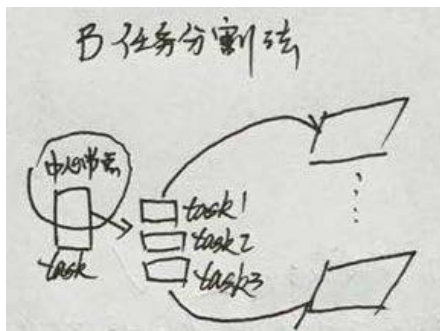 B 任务分割法
中心节点
task
task1
task2
task3